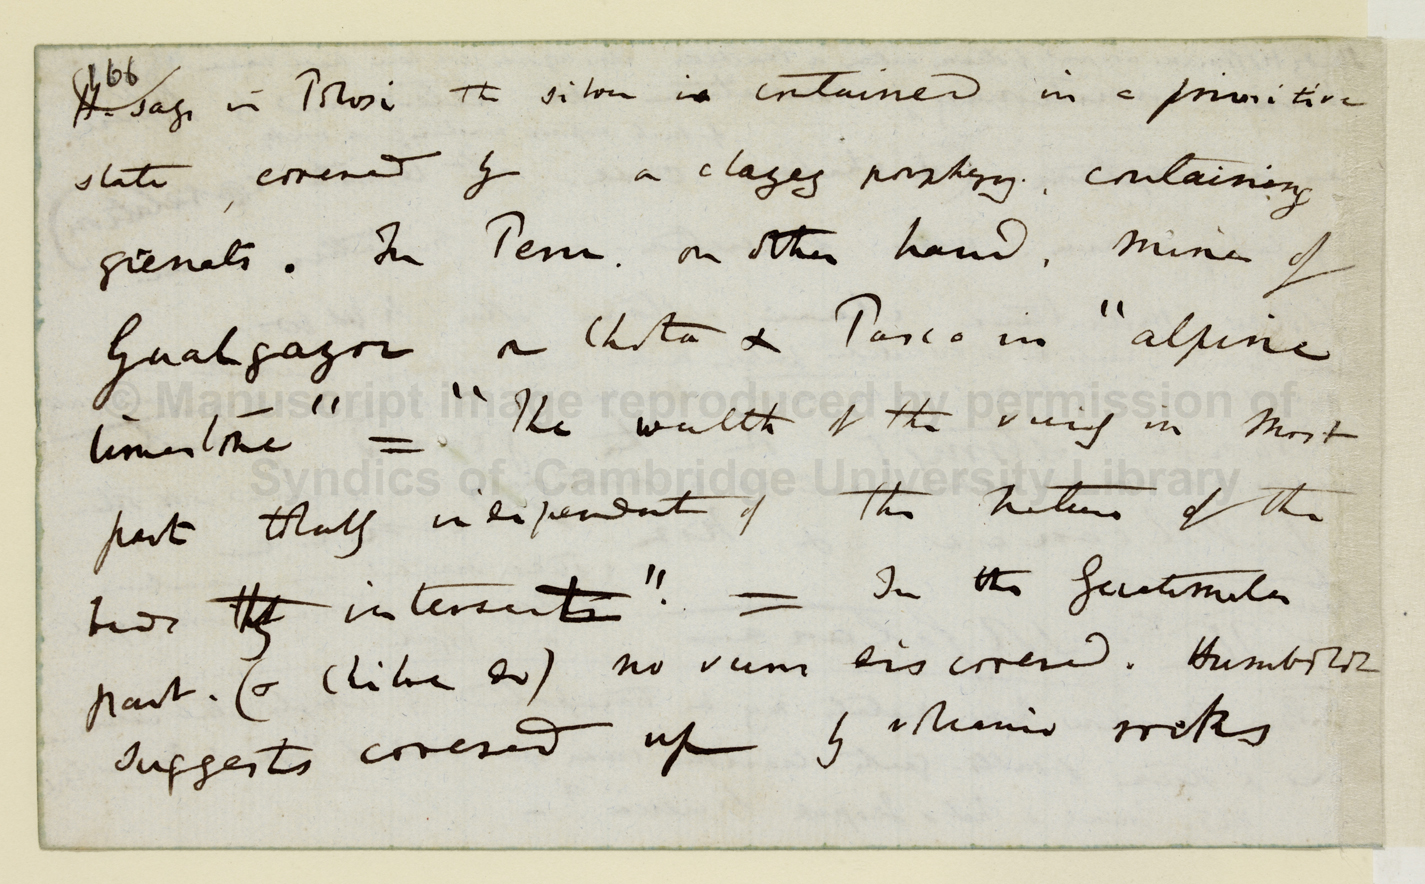 166
H. says in Potosi the silver is contained in a primitive
slate, covered by a clayey porphyry, containing
grenats. In Peru, on other hand, mine of
Gualgayoc or Chota & Pasco in "alpine
limestone" = "The wealth of the veins in most
part totally independent of the nature of the
beds they intersects". = In the Guatemala
part. (& Chiloe do) no veins discovered. Humboldt
suggests covered up by volcanic rocks
© Manuscript image reproduced by permission of
Syndics of Cambridge University Library